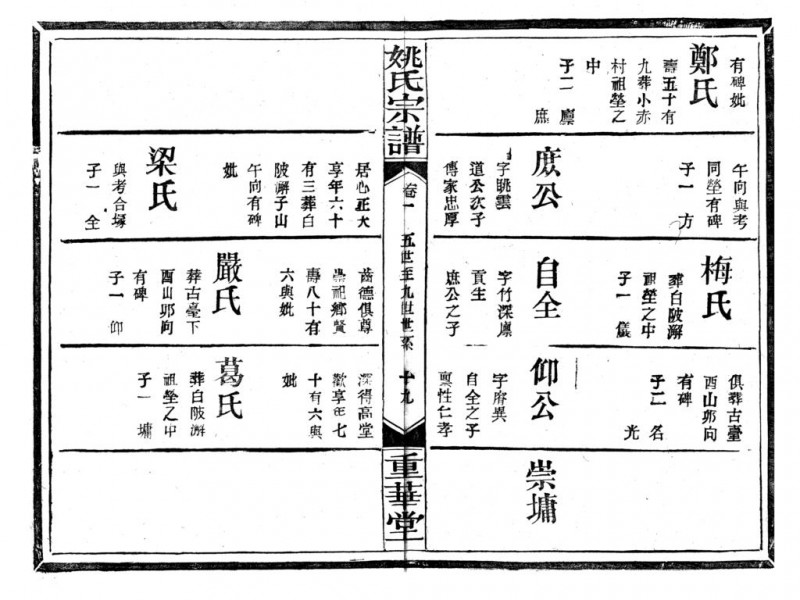 有碑妣
鄭氏
壽五十有
九葬小赤
村祖塋之
中
子二 廩
庶
午向與考
同塋有碑
子一 方
庶公
字眺雲
道公次子
傳家忠厚
梅氏
葬白陂澥
祖塋之中
子一 儀
自全
字竹深廩
貢生
庶公之子
俱葬古臺
酉山卯向
有碑
子二 名
光
仰公
字府異
自全之子
稟性仁孝
崇墉
姚氏宗譜
卷一 五世至九世世系 十九
重華堂
居心正大
享年六十
有三葬白
陂澥子山
午向有碑
妣
梁氏
與考合塚
子一 全
齒德俱尊
崇祀鄉賢
壽八十有
六與妣
嚴氏
葬古臺下
酉山卯向
有碑
子一 仰
深得高堂
歡享年七
十有六與
妣
葛氏
葬白陂澥
祖塋之中
子一 墉